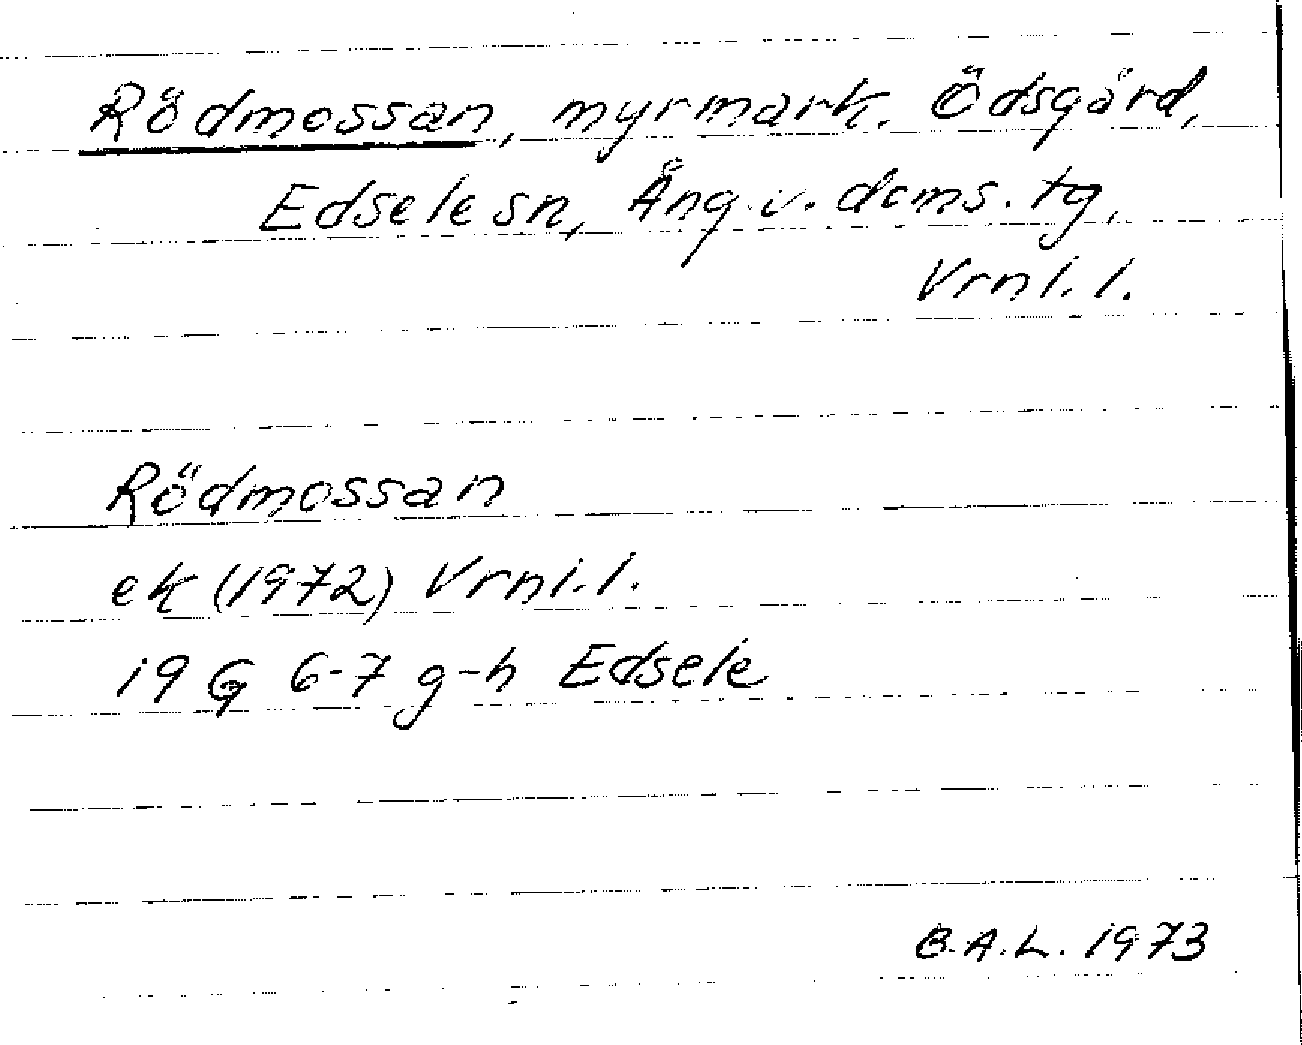 Rödmossan, myrmark. Ödsgård,
Edsele sn, Ång. v. doms. tg,
Vrnl. l.
Rödmossan
ek (1972) Vrnl. l.
19 G 6-7 g-h Edsele
B.A.L. 1973